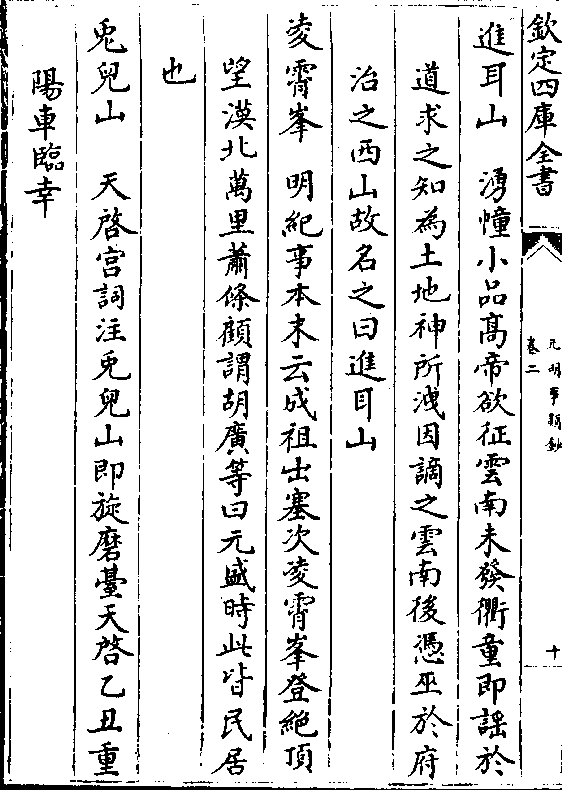 欽定四庫全書
元明事類鈔
卷二
十
進耳山　湧幢小品高帝欲征雲南未發衢童即謡於
道求之知為土地神所洩因謫之雲南後憑巫於府
治之西山故名之曰進耳山
凌霄峯　明紀事本末云成祖出塞次凌霄峯登絶頂
望漠北萬里蕭條顧謂胡廣等曰元盛時此皆民居
也
兎兒山　天啓宫詞注兎兒山即旋磨臺天啓乙丑重
陽車臨幸